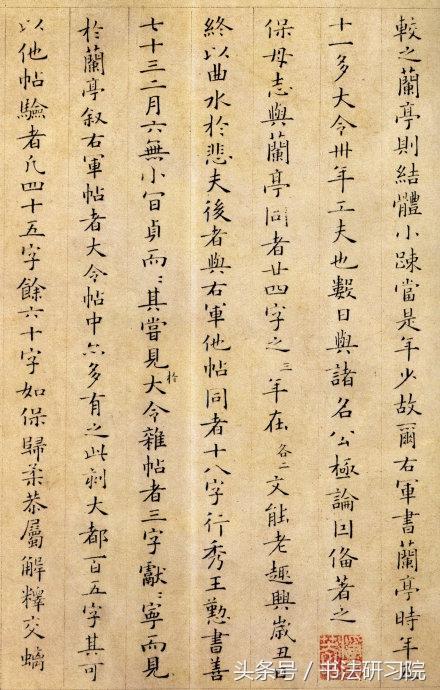 較之蘭亭則結體小踈當是年少故爾右軍書蘭亭時年五
十一多大令卅年工夫也數日與諸名公極論因俻著之
保母志與蘭亭同者廿四字之三年在各二文能老趣興歲丑
終以曲水於悲夫後者與右軍他帖同者十八字行秀王懃書善
七十三二月六無小百貞而〻其嘗見於大令雜帖者三字獻〻寧而見
於蘭亭叙右軍帖者大令帖中亦多有之此刻大都百五字其可
以他帖驗者凡四十五字餘六十字如保歸柔恭屬解釋交螭
头条号/书法研习院